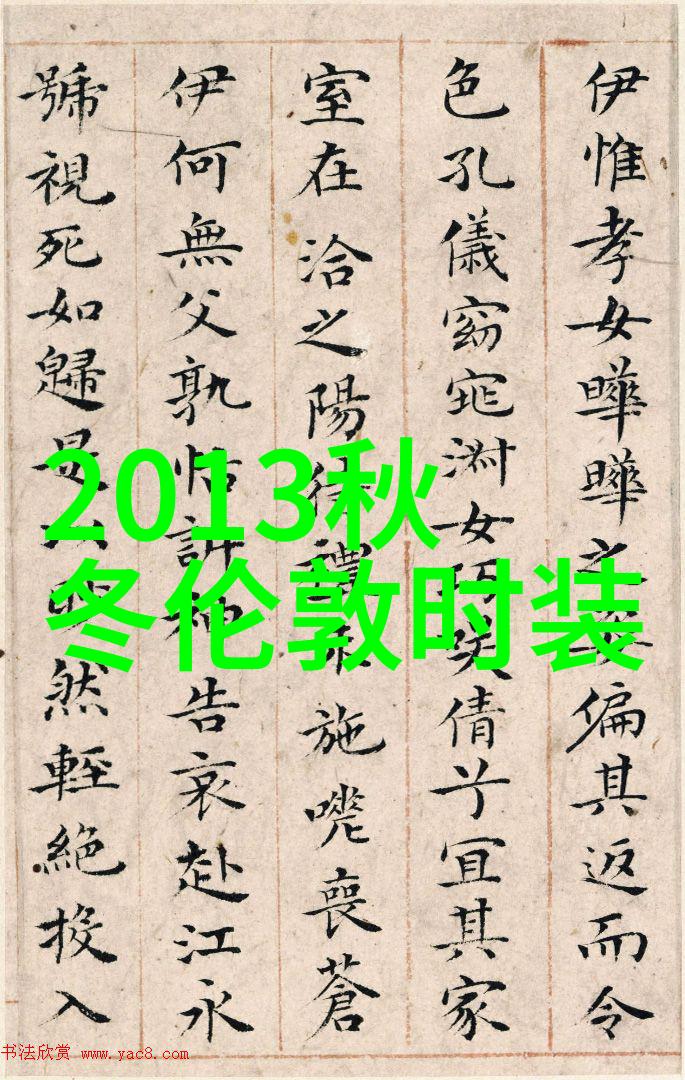 伊惟孝女曄曄之偏其返而令
色孔儀窈窕淑女笑倩兮宜其家
室在洽之陽施嗟喪蒼
伊何無父孰怙訴神告哀赴江永
號視死如歸是然輕絕投入
2013秋
冬伦敦时装
书法欣赏 www.yac8.com